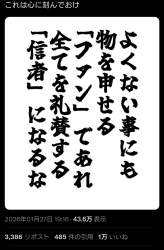 これは心に刻んでおけ
よくない事にも
物を申せる
「ファン」であれ
全てを礼賛する
「信者」になるな
2026年01月27日 19:16・43.6万 表示
3,386 リポスト 485 件の引用 1万 いいね